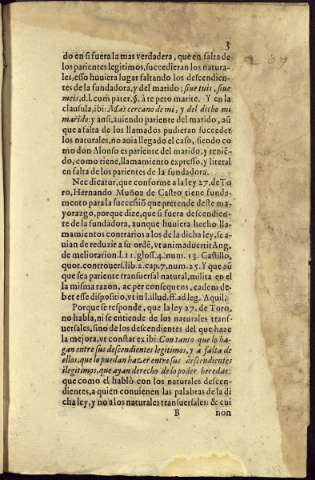 3
do en si fuera la mas verdadera, que en falta de
los parientes legitimos, succedieran los natura-
les, esso huviera lugar faltando los descendien-
tes de la fundadora, y del marido: siue tuis, siue
meis, d.l. cum pater. §. à te peto marite. Y en la
clausula, ibi: Mas cercano de mi, y del dicho mi
marido: y ansi, auiendo pariente del marido, aũ
que a falta de los llamados pudieran succeder
los naturales, no auia llegado el caso, siendo co-
mo don Alonso es pariente del marido, y teniẽ-
do, como tiene, llamamiento expresso, y literal
en falta de los parientes de la fundadora.
Nec dicatur, que conforme a la ley 27. de To
ro, Hernando Muñoz de Castro tiene funda-
mento para la successiõ que pretende deste ma-
yorazgo, porque dize, que si fuera descendien-
te de la fundadora, aunque huviera hecho lla-
mamientos contrarios a los de la dicha ley, se a-
uian de reduzir a su ordẽ, vt animaduertit Ang.
de melioration. l. 11. gloss. 4. num. 13. Castillo,
quot. controuers. lib. 2. cap. 7. num. 25. Y que aũ
que sea pariente transuersal natural, milita en el
la misma razon, ac per consequens, eadem de-
bet esse dispositio, vt in l. illud. ff. ad leg. Aquil.
Porque se responde, que la ley 27. de Toro,
no habla, ni se entiende de los naturales trans-
uersales, sino de los descendientes del que haze
la mejora, vt constat ex ibi: Con tanto que lo ha-
gan entre sus descendientes legitimos, y a falta de
ellos, que lo puedan hazer entre sus descendientes
ilegitimos, que ayan derecho de lo poder heredar:
que como el hablò con los naturales descen-
dientes, a quien conuienen las palabras de la di
cha ley, y no a los naturales transuersales: & cui
B non